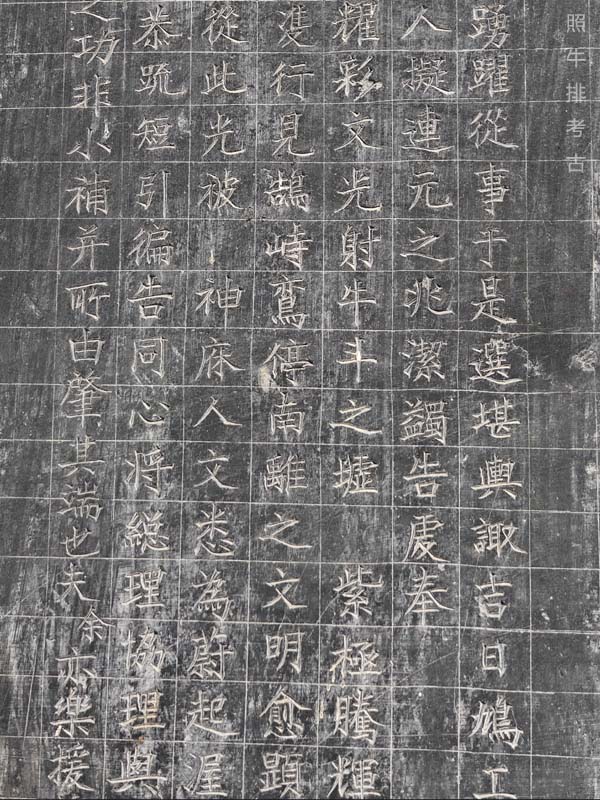 踴躍從事于是選堪輿諏吉日鳩工
人擬連元之兆潔蠲告虔奉
耀彩文光射牛斗之墟 紫極騰輝
行見鵠峙鸞停南離之文明愈顯
從此光被 神庥人文悉為蔚起渥
恭疏短引徧告同心将緫理協理與
之功非小補并所由肇其端也夫余亦樂援
照牛排考古